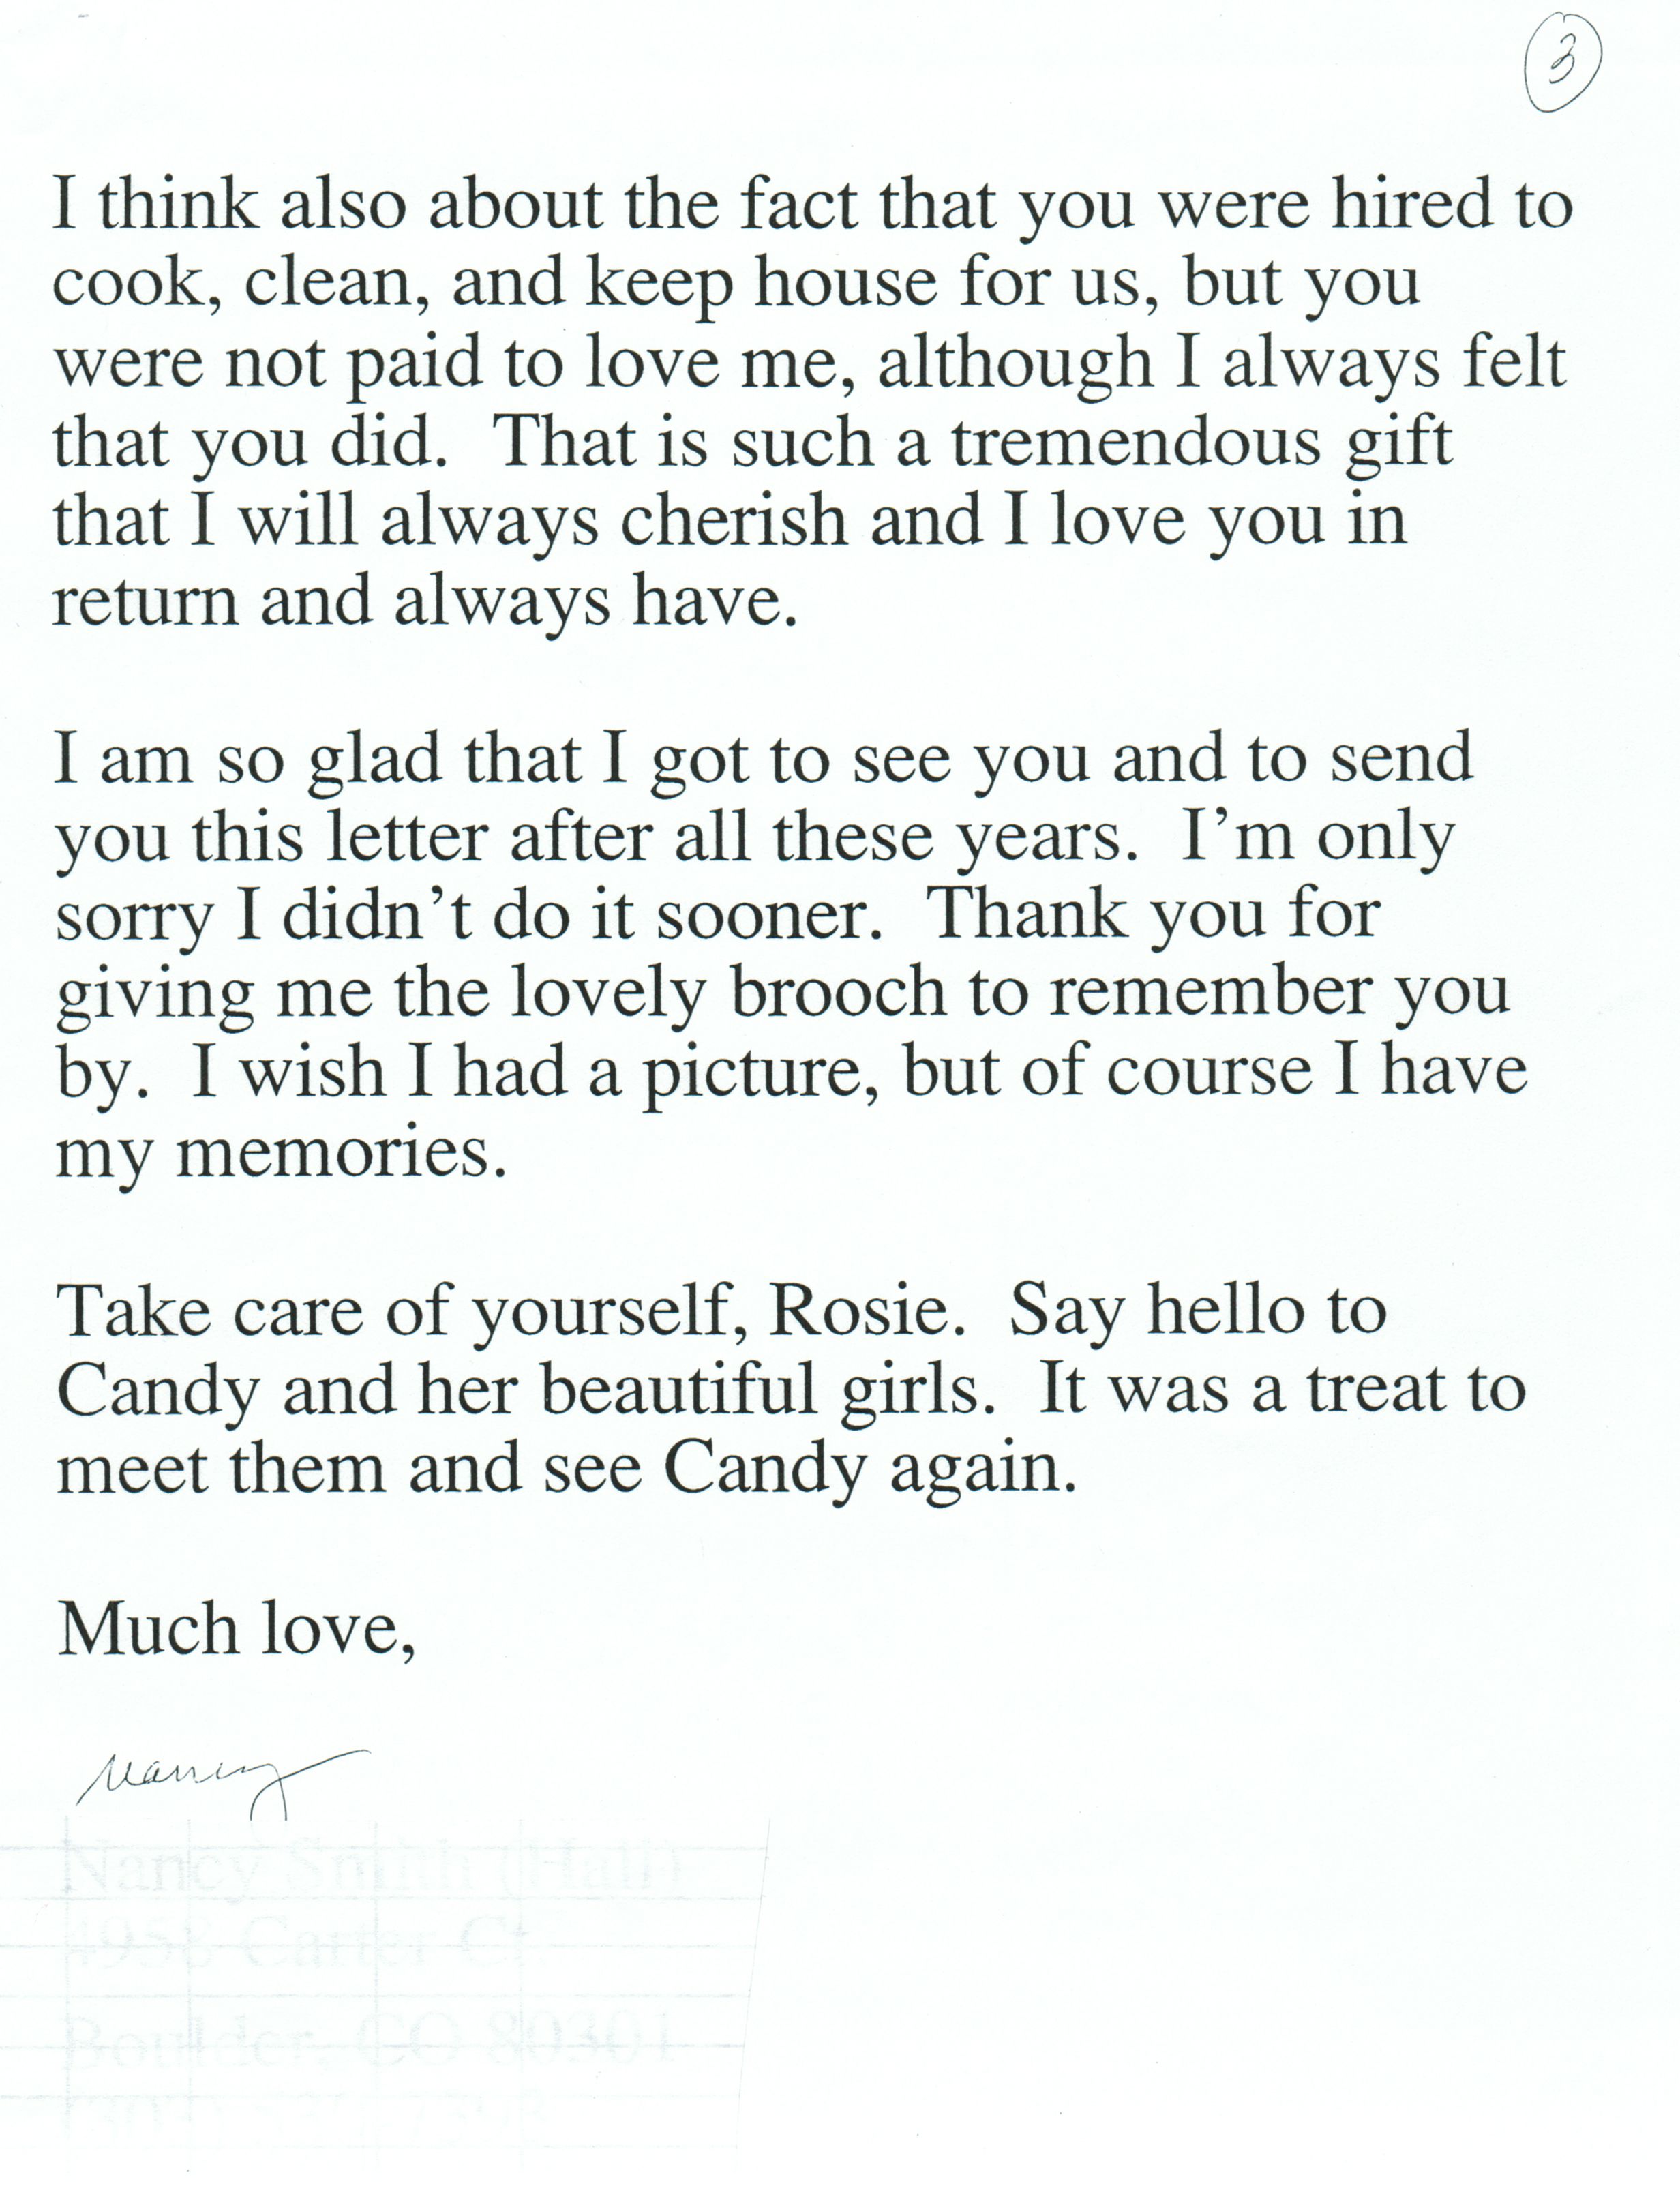 3
I think also about the fact that you were hired to
cook, clean, and keep house for us, but you
were not paid to love me, although I always felt
that you did.  That is such a tremendous gift
that I will always cherish and I love you in
return and always have.
I am so glad that I got to see you and to send
you this letter after all these years.  I’m only
sorry I didn’t do it sooner.  Thank you for
giving me the lovely brooch to remember you
by.  I wish I had a picture, but of course I have
my memories.
Take care of yourself, Rosie.  Say hello to
Candy and her beautiful girls.  It was a treat to
meet them and see Candy again.
Much love,
Nancy